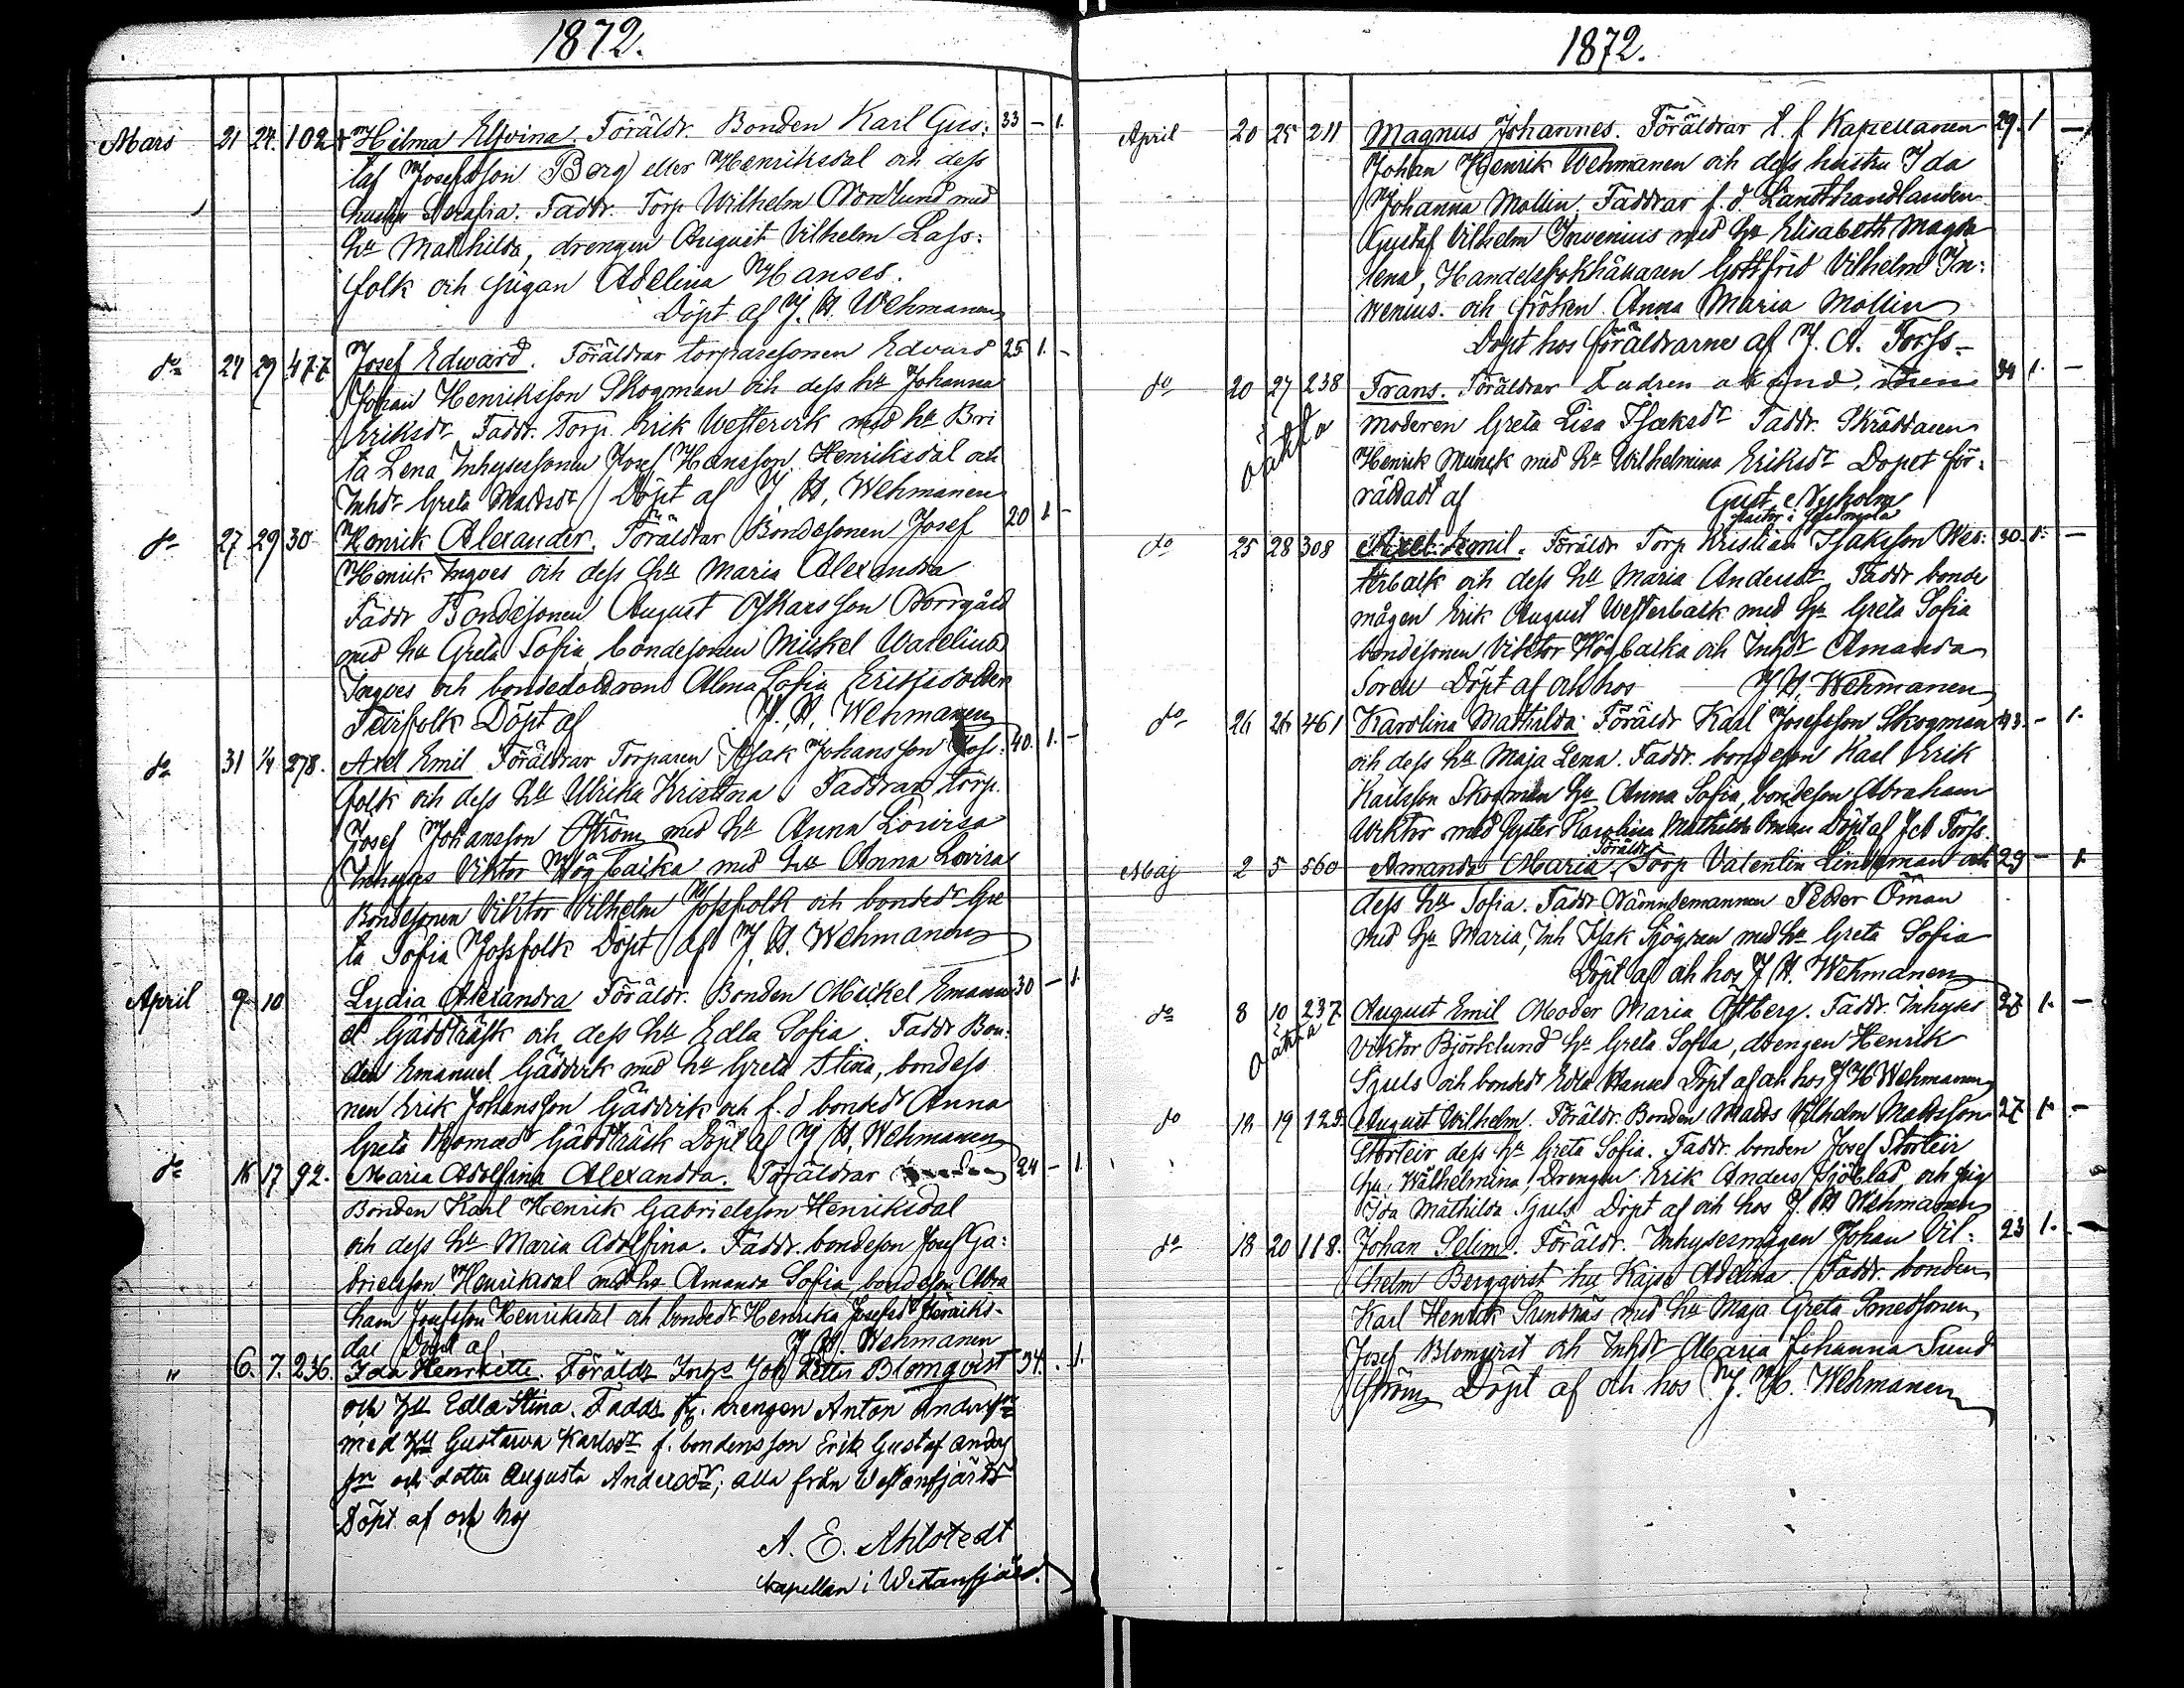 1872.
Mars 21 24. 102 Hilma Elvina. Föräldr. Bonden Karl Gus: 33 – 1.
taf Josefsson Berg eller Henriksdal och dess
hustru Serafia. Faddr. Torp Wilhelm Nordlund med
hu Mathilda, drengen August Vilhelm Lass:
folk och pigan Adelina Hanses.
Döpt af J. H. Wehmanen
do 24 29 477 Josef Edward. Föräldrar torparesonen Edvard 25 1. –
Johan Henriksson Skogman och dess hu Johanna
Eriksdr Faddr. Torp. Erik Westervik med hu Bri
ta Lena Inhysessonen Josef Hansson Henriksdal och
Inhdr Greta Madsdr Döpt af J. H. Wehmanen
do 27 29 30 Henrik Alexander. Föräldrar Bondesonen Josef 20 1 –
Henrik Ingves och dess hu Maria Alexandra
Faddr Bondesonen August Oskarsson Norrgård
med hu Greta Sofia, bondesonen Mickel Warelius
Ingves och bondedottren Alma Sofia Eriksdotter
Teirfolk Döpt af J. H. Wehmanen
do 31 1/4 278. Axel Emil Föräldrar Torparen Isak Johansson Joss: 40. 1. –
folk och dess hu Ulrika Kristina Faddrar torp.
Josef Johansson Öström med hu Anna Lovisa
Inhyses Viktor Högbacka med hu Anna Lovisa
Bondesonen Viktor Vilhelm Jossfolk och bondedr Gre
ta Sofia Jossfolk Döpt af J. H. Wehmanen
April 9 10 Lydia Alexandra Föräldr. Bonden Mickel Emanu 30 – 1.
el Gäddträsk och dess hu Edla Sofia. Faddr Bon:
den Emanuel Gäddvik med hu Greta Stina, bondess
nen Erik Johansson Gäddvik och f. d bondedr Anna
Greta Thomasdr Gäddträsk Döpt af J. H. Wehmanen
do 16 17 92. Maria Adolfina Alexandra. Föräldrar 24 – 1.
Bonden Karl Henrik Gabrielsson Henriksdal
och dess hu Maria Adolfina. Faddr. bondeson Josef Ga:
brielsson Henriksdal med hu Amanda Sofia, bondeson Abra
ham Josefsson Henriksdal och bondedr Henrika Josefsdr Henriks-
dal Döpt af J. H. Wehmanen
" 6. 7. 236. Ida Henriette. Föräldr Inhys Joh Petter Blomqvist 34. . 1.
och hu Edla Stina. Faddr drengen Anton Anderssn
med hu Gustava Karlsdr f. bondensson Erik Gustaf Anders
sn och dotter Augusta Andersdr; alla från Westanfjärd
Döpt af och hos
A. E. Ahlstedt
kapellan i Westanfjärd.
1872.
April 20 25 211 Magnus Johannes. Föräldrar t. f. Kapellanen 29. 1 –
Johan Henrik Wehmanen och dess hustru Ida
Johanna Mollin. Faddrar f. d. Landthandlanden
Gustaf Vilhelm Inwenius med hu Elisabeth Magda
lena, Handelsbokhållaren Gottfrid Vilhelm In:
wenius och fröken Anna Maria Mollin
Döpt hos föräldrarne af J. A. Torss-
do 20 27 238 Frans. Föräldrar Fadren okänd, 34 1. –
oäkta moderen Greta Lisa Isaksdr Faddr. Skräddaren
Henrik Munck med hu Wilhelmina Eriksdr Dopet för:
rättadt af Gust. Nyholm
Pastor i
do 25 28 308 Axel Emil. Föräldr Torp Kristian Isaksson Wes: 30. 1. –
terback och dess hu Maria Andersdr Faddr bonde
mågen Erik August Westerback med hu Greta Sofia
bondesonen Viktor Högbacka och Inhdr Amanda
Soren Döpt af och hos J. H. Wehmanen
do 26 26 461 Karolina Mathilda. Föräldr Karl Josefsson Skogman 43. – 1.
och dess hu Maja Lena. Faddr. bondeson Karl Erik
Karlsson Skogman hu Anna Sofia, bondeson Abraham
Viktor med syster Karolina Mathilda Öman Döpt af J A Torss.
Maj 2 5 560 Amanda Maria. Föräldr Torp Valentin Lindeman och 29 – 1.
dess hu Sofia. Faddr Nämndemannen Peder Öman
med hu Maria, Inh Isak Sjögren med hu Greta Sofia
Döpt af och hos J. H. Wehmanen
do 8 10 237. August Emil Moder Maria Östberg. Faddr. Inhyses 27 1. –
oäkta Viktor Björklund hu Greta Sofia, drengen Henrik
Sjuls och bondedr Edla Hanses Döpt af och hos J H Wehmanen
do 19 125. August Vilhelm. Föräldr. Bonden Madts Vilhelm Madtsson 27 1 –
Storteir dess hu Greta Sofia. Faddr. bonden Josef Storteir
hu. Wilhelmina, Drengen Erik Anders Sjöblad och pig
Ida Mathilda Sjuls Döpt af och hos J. H Wehmanen
do 18 20 118. Johan Selim. Föräldr. Inhysesmågen Johan Vil: 23 1. –
helm Bergqvist hu Kajsa Adelina. Faddr. bonden
Karl Henrik Sundnäs med hu Maja Greta Smedsonen
Josef Blomqvist och Inhdr Maria Johanna Sund
ström Döpt af och hos J. H. Wehmanen